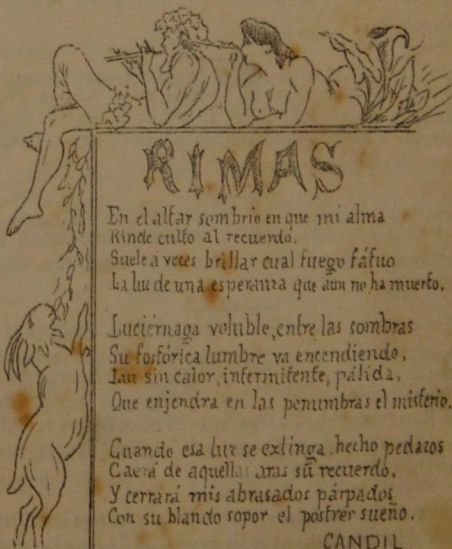 RIMAS
En el altar sombrio en que mi alma
Rinde culto al recuerdo,
Suele á veces brillar cual fuego fátuo
La luz de una esperanza que aun no ha muerto.
Luciérnaga voluble, entre las sombras
Su fosfórica lumbre va encendiendo,
Luz sin calor, intermitente, pálida,
Que enjendra en las penumbras el misterio.
Cuando esa luz se extinga, hecho pedazos
Caerá de aquellas aras su recuerdo,
Y cerrará mis abrasados párpados
Con su blando sopor el postrer sueño.
CANDIL